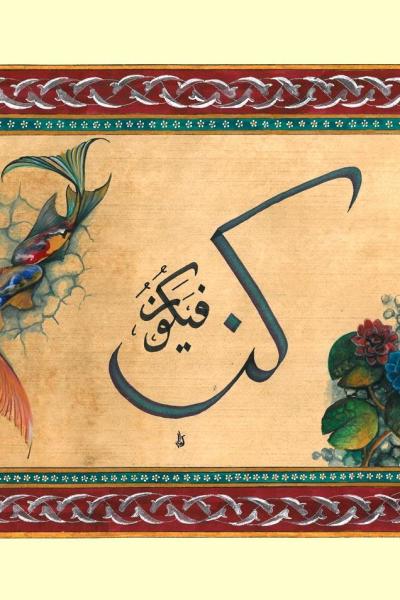 كن
فَيَكُونُ